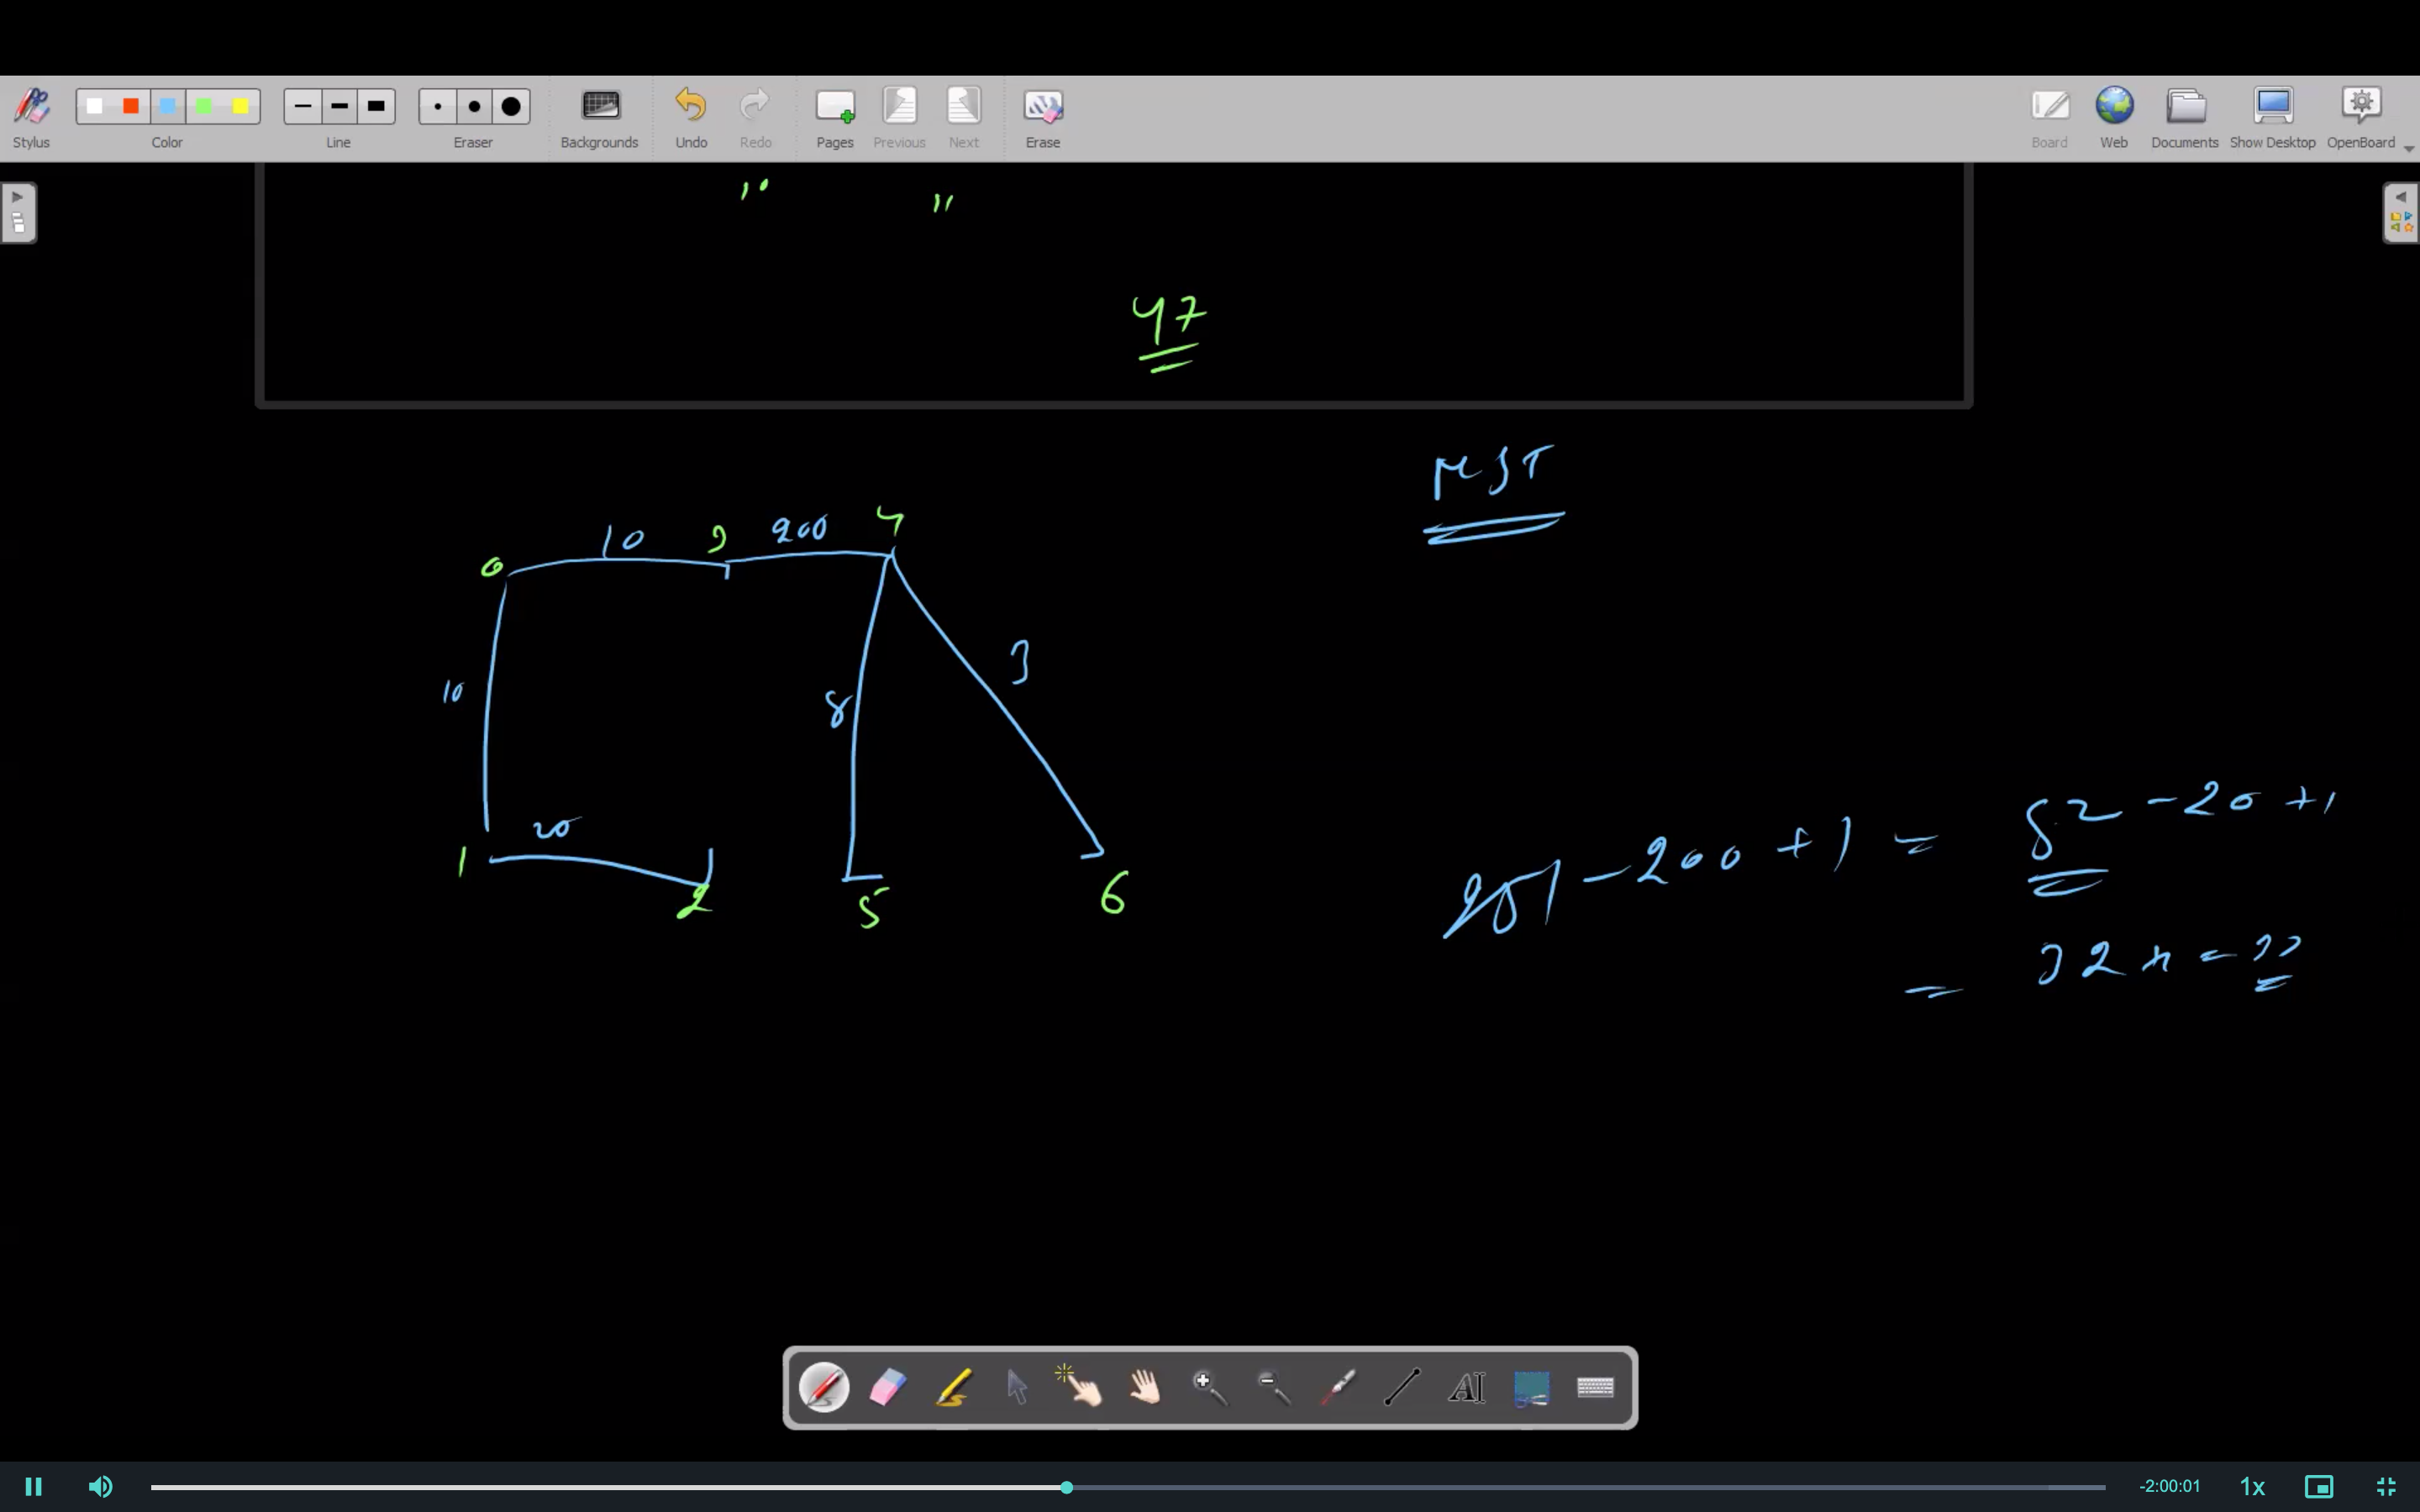 Stylus Color Line Eraser Backgrounds Undo Redo Pages Previous Next Erase Board Web Documents Show Desktop OpenBoard
47
MST
0 10 3 200 4
3
10
8
20
1 2 5 6
251 - 200 + 1 = 52 - 20 + 1
= 32 + 1 = 33
AI
-2:00:01 1x